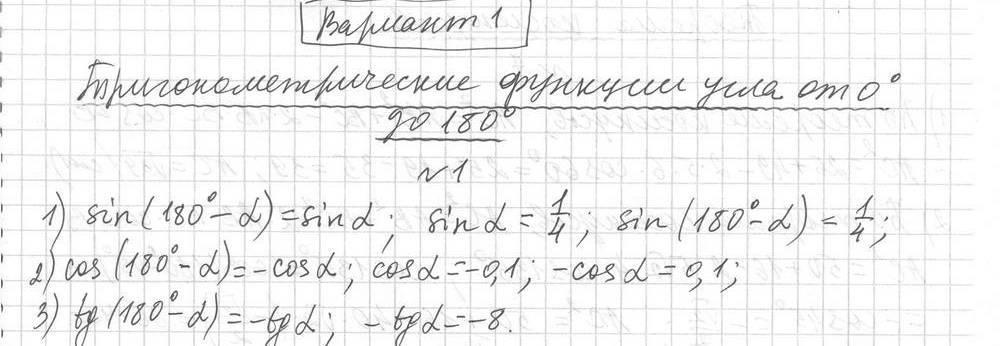 Вариант 1
Тригонометрические функции угла от 0°
до 180°
№1
1) sin(180°-α)=sinα; sinα=1/4; sin(180°-α)=1/4;
2) cos(180°-α)=-cosα; cosα=-0,1; -cosα=0,1;
3) tg(180°-α)=-tgα; -tgα=-8.